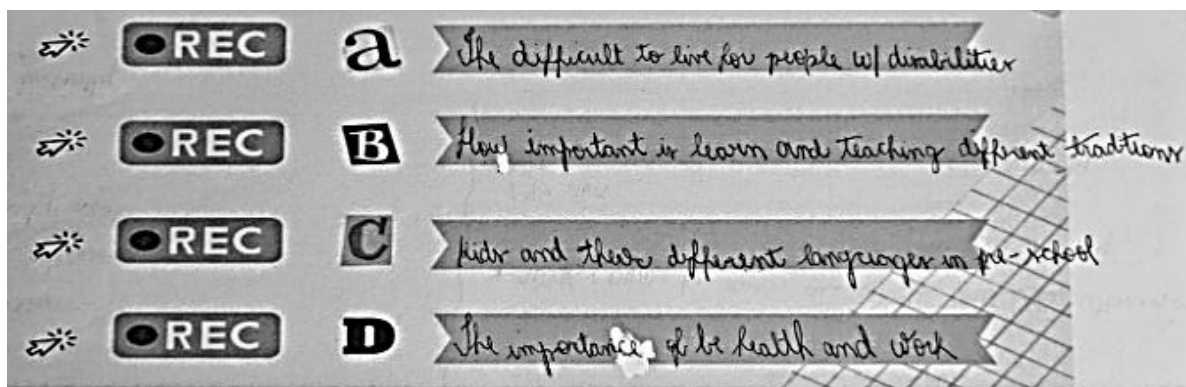 REC a The difficult to live for people w/ disabilities
REC B How important is learn and teaching different tradtions
REC C kids and their different languages in pre-school
REC D The importance of be health and work